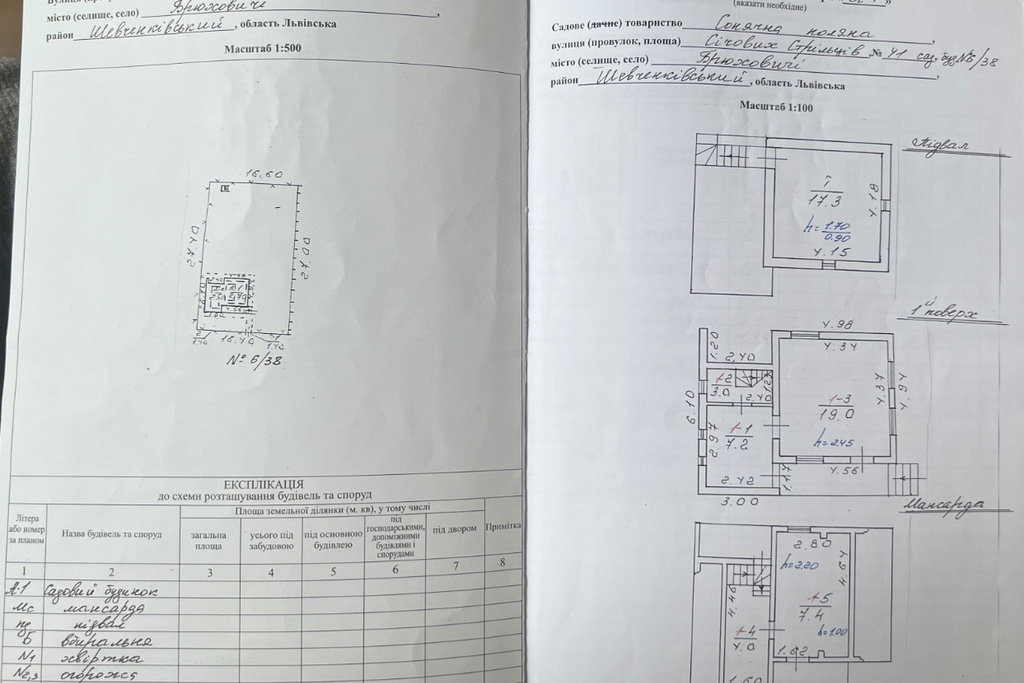 місто (селище, село) Брюховичі,
район Шевченківський, область Львівська
Масштаб 1:500
16.60
27.40
27.00
1.40 16.40 1.40
№ 6/38
ЕКСПЛІКАЦІЯ
до схеми розташування будівель та споруд
Літера або номер за планом
Назва будівель та споруд
Площа земельної ділянки (м. кв), у тому числі
загальна площа
усього під забудовою
під основною будівлею
під господарськими, допоміжними будівлями і спорудами
під двором
Примітка
1 2 3 4 5 6 7 8
А-1 Садовий будинок
Мс мансарда
пд підвал
Б вбиральня
N1 хвіртка
N2,3 огорожа
(вказати необхідне)
Садове (дачне) товариство Сонячна поляна,
вулиця (провулок, площа) Січових Стрільців, № 41 сад. буд №6/38
місто (селище, село) Брюховичі,
район Шевченківський, область Львівська
Масштаб 1:100
Підвал
I
17.3
4.18
h=1.70/0.90
4.15
1й поверх
4.98
4.34
1.20
2.40
1-2
3.0
1.27
2.40
6.10
1-3
19.0
4.37
4.94
1-1
7.2
2.97
h=2.45
4.56
2.42
1.47
3.00
Мансарда
2.80
h=2.20
4.64
4.46
1-5
7.4
1-4
4.0
h=1.00
1.62
1.60